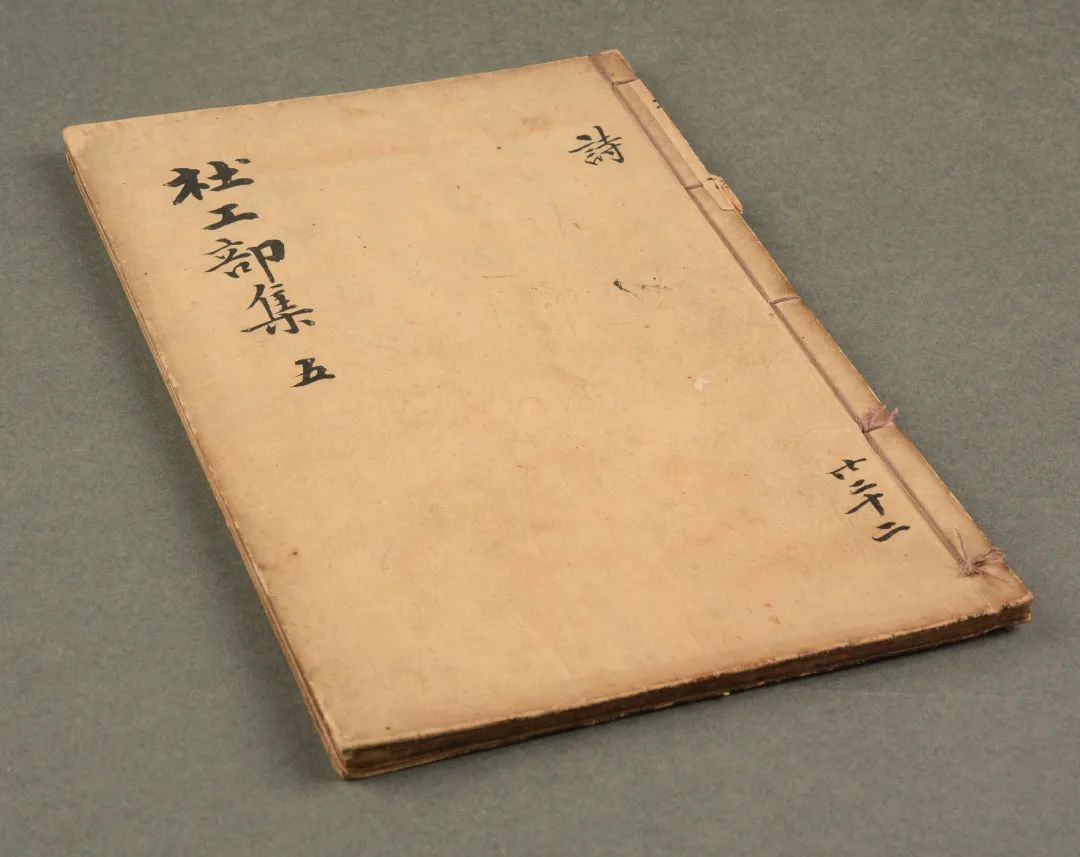 詩
共十二
杜工部集 五